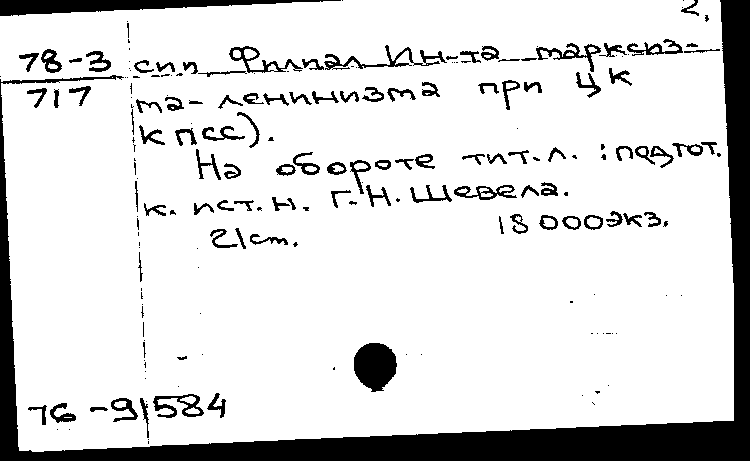 2.
78-3 сии Филиал Ин-та марксиз-
717 ма-ленинизма при ЦК
КПСС).
На обороте тит.л. : подгот.
к. ист. н. Г.Н. Шевела.
21 см. 18 000 экз.
76-91584